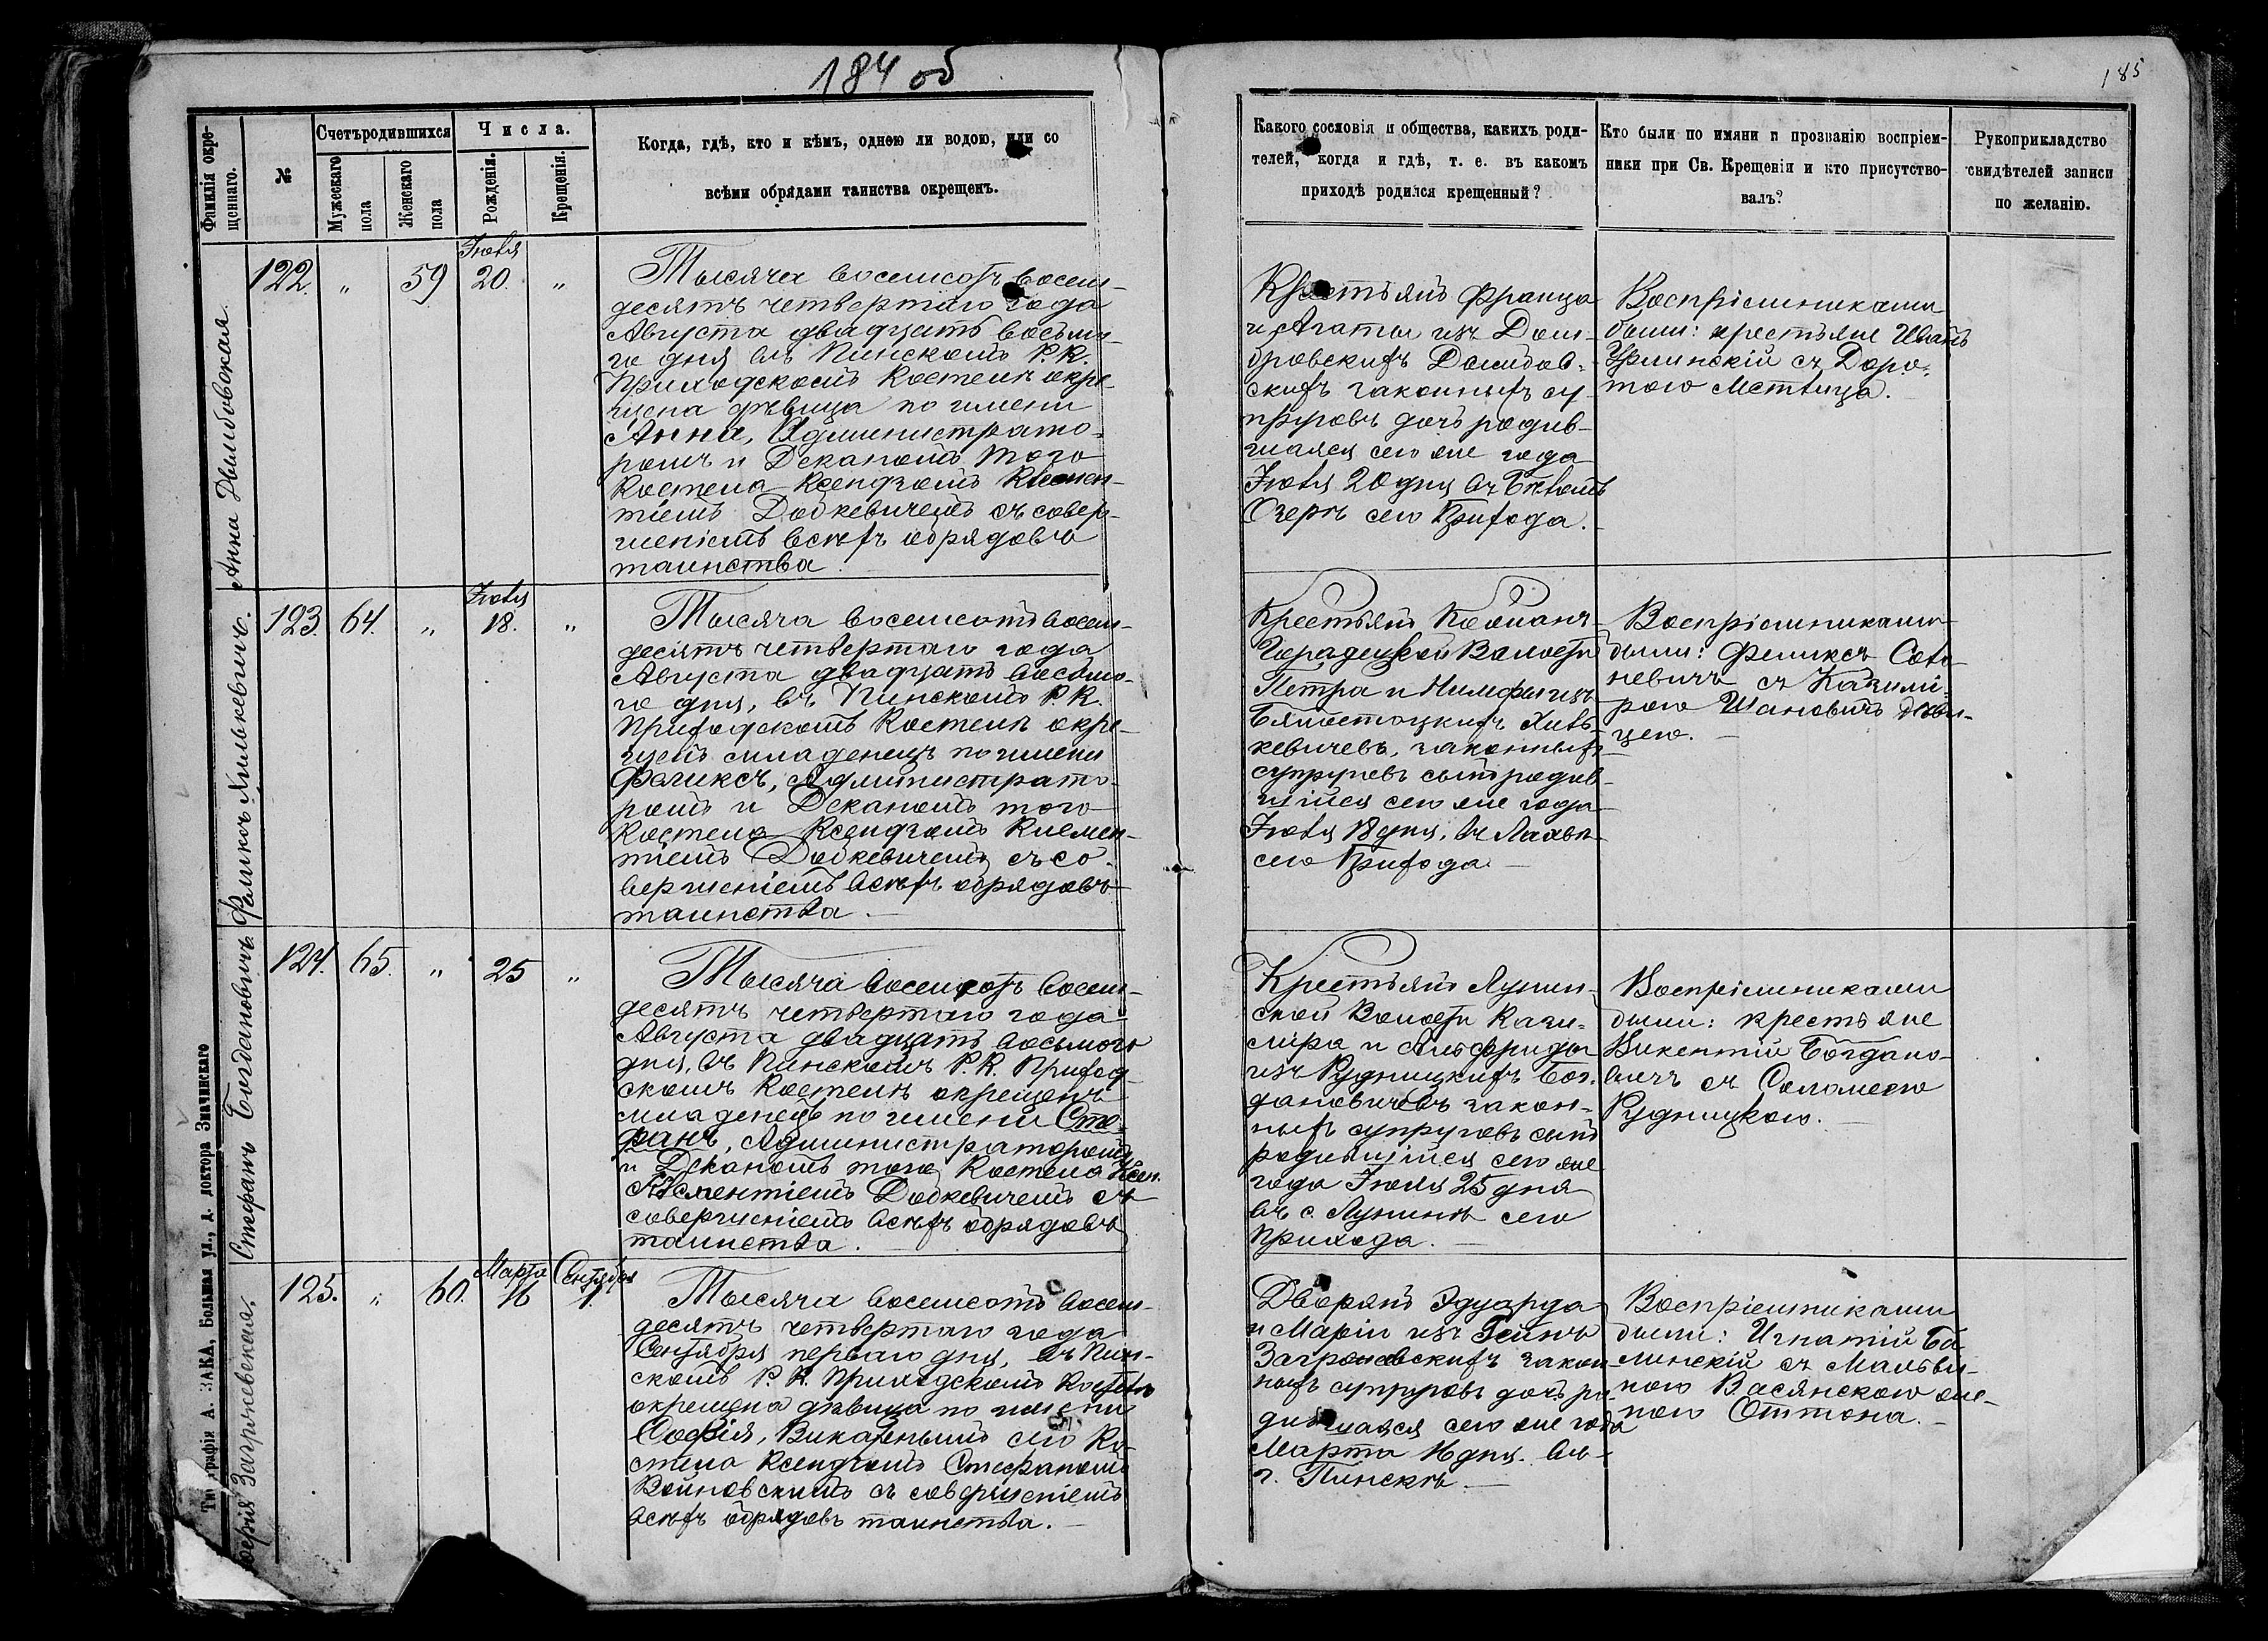 184 об
185
Фамилія окре-
щеннаго.
№
Счетъ родившихся
Мужескаго
пола
Женскаго
пола
Числа.
Рожденія.
Крещенія.
Когда, гдѣ, кто и кѣмъ, одною ли водою, или со
всѣми обрядами таинства окрещенъ.
Какого сословія и общества, какихъ роди-
телей, когда и гдѣ, т. е. въ какомъ
приходѣ родился крещенный?
Кто были по имяни и прозванію воспріем-
ники при Св. Крещенія и кто присутство-
валъ?
Рукоприкладство
свидѣтелей записи
по желанію.
Анна
122. „ 59 Іюля 20. „
Тысяча восемсотъ восем-
десятъ четвертаго года
Августа двадцать восьма-
го дня въ Пинскомъ Р. К.
Приходскомъ Костелѣ окре-
щена дѣвица по имени
Анна, Администрато-
ромъ и Деканомъ того
Костела Ксендзомъ Клемен-
тіемъ Добкевичемъ съ совер-
шеніемъ всѣхъ обрядовъ
таинства.
Крестьянъ Франца
и Агаты изъ Дом-
бровскихъ
законныхъ су-
пруговъ дочь родив-
шаяся сего же года
Іюля 20 дня въ Бѣломъ
Озерѣ сего Прихода.
Воспріемниками
были: крестьяне Иванъ
съ Доро-
тою
Феликсъ Хилькевичъ.
123. 64. „ Іюля 18. „
Тысяча восемсотъ восем-
десятъ четвертаго года
Августа двадцать восьма-
го дня, въ Пинскомъ Р. К.
Приходскомъ Костелѣ окре-
щенъ младенецъ по имени
Феликсъ, Администрато-
ромъ и Деканомъ того
Костела Ксендзомъ Клемен-
тіемъ Добкевичемъ съ со-
вершеніемъ всѣхъ обрядовъ
таинства.
Крестьянъ
Городецкой Волости
Петра и Нимфы изъ
Бялостоцкихъ Хиль-
кевичевъ, законныхъ
супруговъ сынъ родив-
шійся сего же года
Іюля 18 дня, въ Лахвѣ
сего Прихода.
Воспріемниками
были: Феликсъ
съ Казимі-
рою дѣви-
цею.
Стефанъ Богдановичъ
124. 65. „ 25 „
Тысяча восемсотъ восем-
десятъ четвертаго года
Августа двадцать восьмого
дня, въ Пинскомъ Р. К. Приход-
скомъ Костелѣ окрещенъ
младенецъ по имени Сте-
фанъ, Администраторомъ
и Деканомъ того Костела Ксен.
Клементіемъ Добкевичемъ съ
совершеніемъ всѣхъ обрядовъ
таинства.
Крестьянъ Лунин-
ской Волости Кази-
міра и Альфриды
изъ Рудницкихъ Бог-
дановичевъ закон-
ныхъ супруговъ сынъ
родившійся сего же
года Іюля 25 дня
въ с. Лунинѣ сего
прихода.
Воспріемниками
были: крестьяне
Викентій Богдано-
вичъ съ Саломеею
Рудницкою.
Софія
125. „ 60. Марта 16 Сентября 1.
Тысяча восемсотъ восем-
десятъ четвертаго года
Сентября перваго дня, въ Пин-
скомъ Р. К. Приходскомъ Костелѣ
окрещена дѣвица по имени
Софія, Викарнымъ сего Ко-
стела Ксендзомъ Стефаномъ
Войновскимъ съ совершеніемъ
всѣхъ обрядовъ таинства.
Дворянъ Эдуарда
и Маріи изъ
закон-
ныхъ супруговъ дочь ро-
дившаяся сего же года
Марта 16 дня. въ
г. Пинскѣ.
Воспріемниками
были: Игнатій Ба-
линскій съ Мальви-
ною Васянскою же-
ною Оттона.
Типографія А. ЗАКА, Большая ул., д. доктора Значинскаго